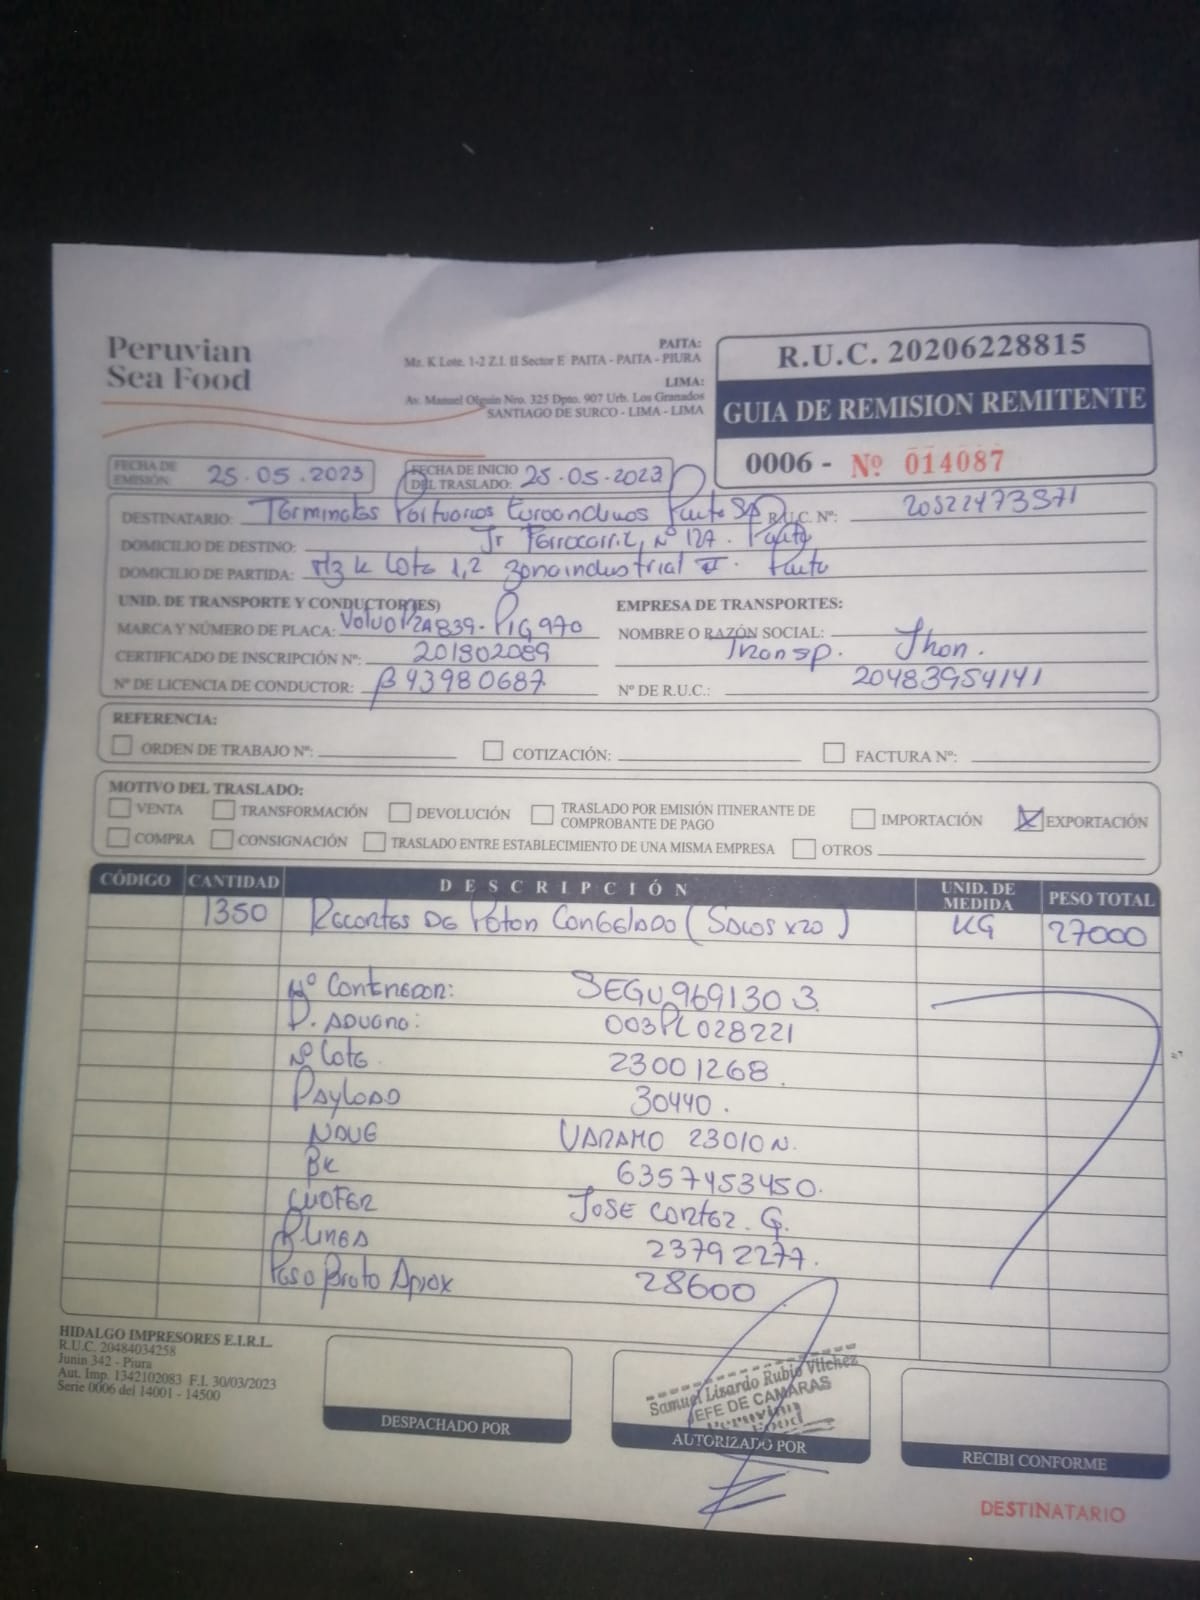 Peruvian
Sea Food
PAITA:
Mz. K Lote. 1-2 Z.I. II Sector F. PAITA - PAITA - PIURA
LIMA:
Av. Manuel Olguin Nro. 325 Dpto. 907 Urb. Los Granados
SANTIAGO DE SURCO - LIMA - LIMA
R.U.C. 20206228815
GUIA DE REMISION REMITENTE
0006 - Nº 014087
FECHA DE EMISIÓN: 25.05.2023
FECHA DE INICIO DEL TRASLADO: 25.05.2023
DESTINATARIO: Terminales Portuarios Euroandinos Paita SA R.U.C. Nº: 20522473571
DOMICILIO DE DESTINO: Jr Ferrocarril Nº 127. Paita
DOMICILIO DE PARTIDA: Mz K Lote 1,2 zona industrial II. Paita
UNID. DE TRANSPORTE Y CONDUCTOR(ES)
MARCA Y NÚMERO DE PLACA: Volvo P2A839 - P1G970
CERTIFICADO DE INSCRIPCIÓN Nº: 201802089
Nº DE LICENCIA DE CONDUCTOR: B43980687
EMPRESA DE TRANSPORTES:
NOMBRE O RAZÓN SOCIAL:
Transp. Jhon.
Nº DE R.U.C.: 20483954141
REFERENCIA:
ORDEN DE TRABAJO Nº: COTIZACIÓN: FACTURA Nº:
MOTIVO DEL TRASLADO:
VENTA TRANSFORMACIÓN DEVOLUCIÓN TRASLADO POR EMISIÓN ITINERANTE DE COMPROBANTE DE PAGO IMPORTACIÓN EXPORTACIÓN
COMPRA CONSIGNACIÓN TRASLADO ENTRE ESTABLECIMIENTO DE UNA MISMA EMPRESA OTROS
CÓDIGO CANTIDAD DESCRIPCIÓN UNID. DE MEDIDA PESO TOTAL
1350 Recortes de Poton Congelado (Sacos x20) KG 27000
Nº Contenedor: SEGU 969130 3
P. Aduana: 003PL028221
Nº Lote 23001268.
Payload 30440.
Nave VARAMO 23010N.
BK 6357453450.
Chofer Jose Cortez. G.
P. Linea 23792277.
Peso Bruto Aprox 28600
HIDALGO IMPRESORES E.I.R.L.
R.U.C. 20484034258
Junin 342 - Piura
Aut. Imp. 1342102083 F.I. 30/03/2023
Serie 0006 del 14001 - 14500
Samuel Lisardo Rubio Vilchez
JEFE DE CAMARAS
Peruvian
Food
DESPACHADO POR
AUTORIZADO POR
RECIBI CONFORME
DESTINATARIO